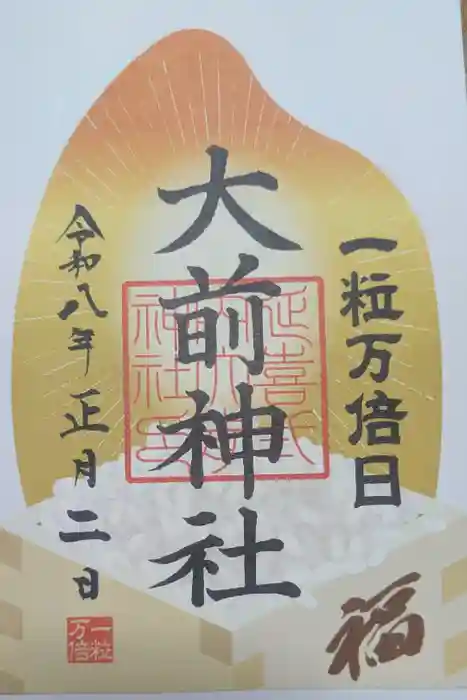 一粒万倍日
大前神社
令和八年正月二日
福
一粒
万倍